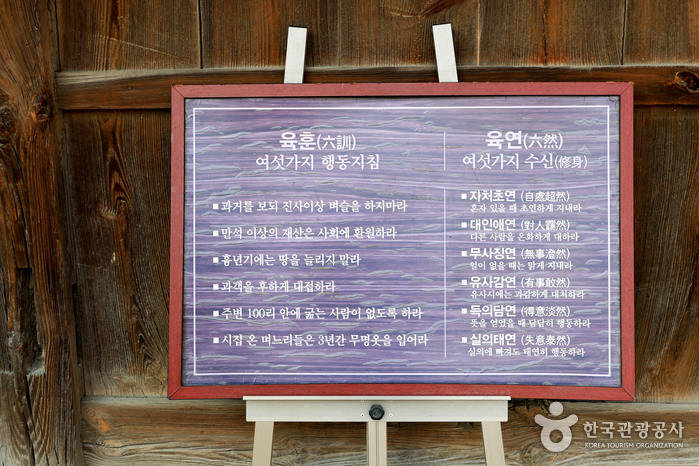 육훈(六訓)
여섯가지 행동지침
■ 과거를 보되 진사이상 벼슬을 하지마라
■ 만석 이상의 재산은 사회에 환원하라
■ 흉년기에는 땅을 늘리지 말라
■ 과객을 후하게 대접하라
■ 주변 100리 안에 굶는 사람이 없도록 하라
■ 시집 온 며느리들은 3년간 무명옷을 입어라
육연(六然)
여섯가지 수신(修身)
■ 자처초연 (自處超然)
혼자 있을 때 초연하게 지내라
■ 대인애연 (對人靄然)
다른 사람을 온화하게 대하라
■ 무사징연 (無事澄然)
일이 없을 때는 맑게 지내라
■ 유사감연 (有事敢然)
유사시에는 과감하게 대처하라
■ 득의담연 (得意淡然)
뜻을 얻었을 때 담담히 행동하라
■ 실의태연 (失意泰然)
실의에 빠져도 태연히 행동하라
한국관광공사
KOREA TOURISM ORGANIZATION